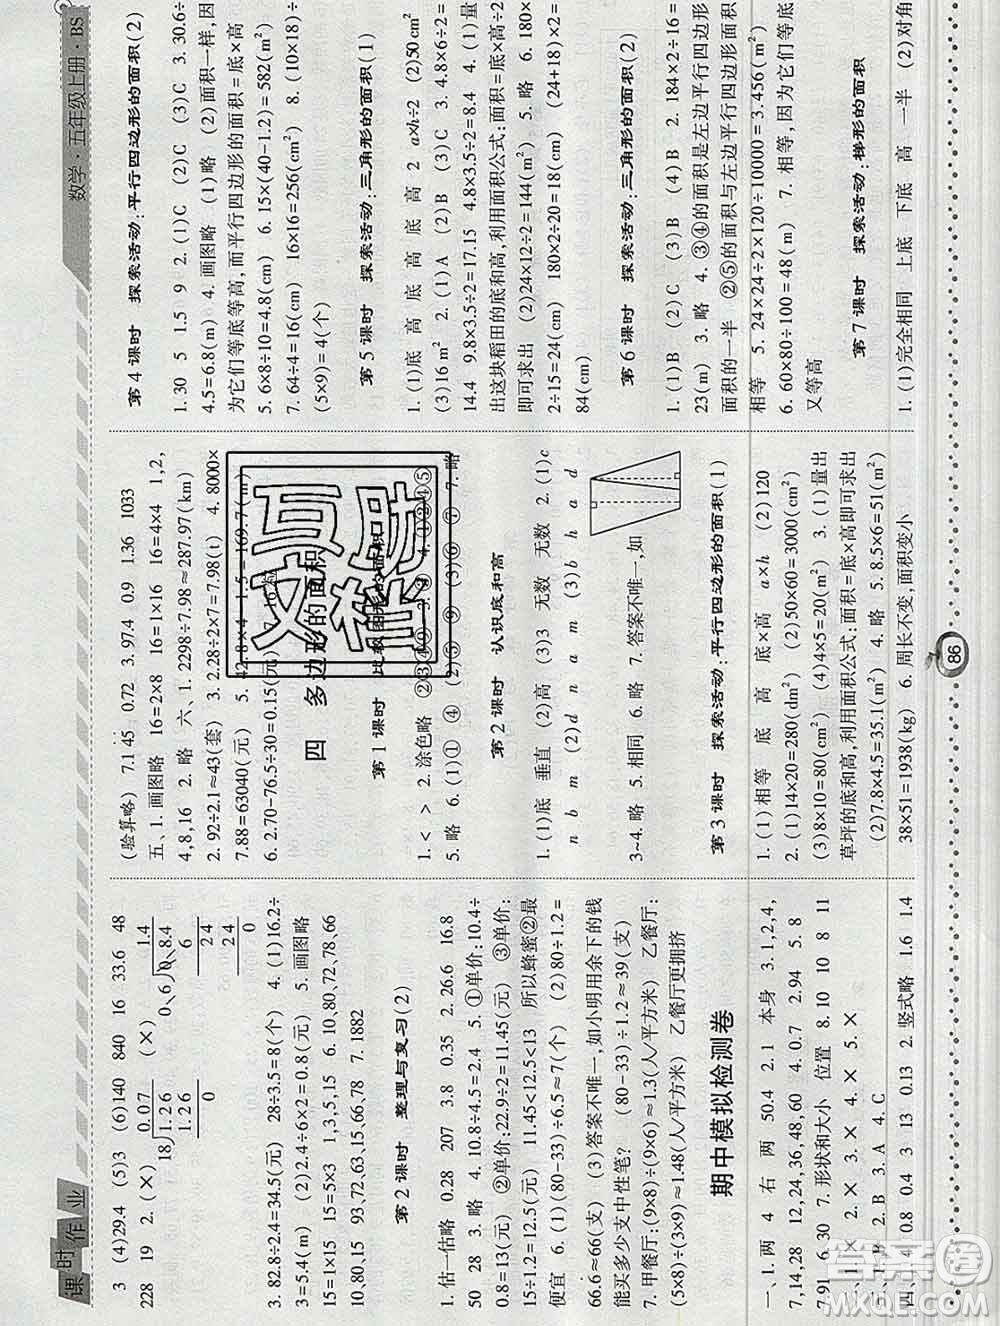 课时作业
数学·五年级上册·BS
3 (4)29.4 (5)3 (6)140 840 16 33.6 48
228 19 2. (×)
0.07
18)1.26
1.26
0
(×)
1.4
0.6)0.8.4
6
24
24
0
3. 82.8÷2.4=34.5(元) 28÷3.5=8(个) 4. (1)16.2÷
3=5.4(元) (2)2.4÷6×2=0.8(元) 5. 画图略
15=1×15 15=5×3 1,3,5,15 6. 10,80,72,78,66
10,80,15 93,72,63,15,78 90,72,78,66 7. 1882
第2课时 整理与复习(2)
1. 估一估略 0.28 207 3.8 0.35 2. 26.6 16.8
50 28 3. 略 4. 10.8÷4.5=2.4 5. ①单价:10.4÷
0.8=13(元) ②单价:22.9÷2=11.45(元) ③单价:
15÷1.2=12.5(元) 11.45<12.5<13 所以蜂蜜②最
便宜 6. (1)(80-33)÷6.5≈7(个) (2)80÷1.2≈
66.6≈66(支) (3)答案不唯一,如小明用余下的钱
能买多少支中性笔? (80-33)÷1.2≈39(支)
7. 甲餐厅:(9×8)÷(9×6)≈1.3(人/平方米) 乙餐厅:
(5×8)÷(3×9)≈1.48(人/平方米) 乙餐厅更拥挤
期中模拟检测卷
一、1. 两 4 右 两 两 50.4 2. 1 本身 3. 1,2,4,
7,14,28 12,24,36,48,60 4. 0.7 2.94 5. 8
7.91 6. 30 7. 形状和大小 位置 8. 10 10 8 11
二、1. × 2. × 3. × 4. × 5. ×
三、1. B 2. B 3. A 4. C
四、1. 0.8 0.4 3 13 0.13 2. 竖式略 1.6 1.4
(验算略) 7.145 0.72 3. 97.4 0.9 1.36 1033
五、1. 画图略 16=2×8 16=1×16 16=4×4 1,2,
4,8,16 2. 略 六、1. 2298÷7.98≈287.97(km)
2. 92÷2.1≈43(套) 3. 2.28÷2×7=7.98(t) 4. 8000×
7.88=63040(元) 5. 42.8×4-1.5=169.7(m)
6. 2.70-76.5÷30=0.15(元)
四 多边形的面积
第1课时 比较图形的面积
1. < > 2. 涂色略 ②③④⑤
5. 略 6. (1)① ④ (2)⑤ ⑨ (3)⑥ ④ 7. 略
第2课时 认识底和高
1. (1)底 垂直 (2)高 (3)3 无数 无数 2. (1)c
n b m (2)d n a m (3)b h a d
3~4. 略 5. 相同 6. 略 7. 答案不唯一,如
第3课时 探索活动:平行四边形的面积(1)
1. (1)相等 底 高 底×高 a×h (2)120
2. (1)14×20=280(dm²) (2)50×60=3000(cm²)
(3)8×10=80(cm²) (4)4×5=20(m²) 3. (1)量出
草坪的底和高,利用面积公式:面积=底×高即可求出
(2)7.8×4.5=35.1(m²) 4. 略 5. 8.5×6=51(m²)
38×51=1938(kg) 6. 周长不变,面积变小
第4课时 探索活动:平行四边形的面积(2)
1. 30 5 1.5 9 2. (1)C (2)C (3)C 3. 30.6÷
4.5=6.8(m) 4. 画图略 (1)略 (2)面积一样,因
为它们等底等高,而平行四边形的面积=底×高
5. 6×8÷10=4.8(cm) 6. 15×(40-1.2)=582(m²)
7. 64÷4=16(cm) 16×16=256(cm²) 8. (10×18)÷
(5×9)=4(个)
第5课时 探索活动:三角形的面积(1)
1. (1)底 高 底 高 底 高 2 a×h÷2 (2)50 cm²
(3)16 m² 2. (1)A (2)B (3)C 3. 4.8×6÷2=
14.4 9.8×3.5÷2=17.15 4.8×3.5÷2=8.4 4. (1)量
出这块稻田的底和高,利用面积公式:面积=底×高÷2
即可求出 (2)24×12÷2=144(m²) 5. 略 6. 180×
2÷15=24(cm) 180×2÷20=18(cm) (24+18)×2=
84(cm)
第6课时 探索活动:三角形的面积(2)
1. (1)B (2)C (3)B (4)B 2. 184×2÷16=
23(m) 3. 略 4. ③④的面积是左边平行四边形
面积的一半 ②⑤的面积与左边平行四边形面积
相等 5. 24×24÷2×120÷10000=3.456(m²)
6. 60×80÷100=48(m) 7. 相等,因为它们等底
又等高
第7课时 探索活动:梯形的面积
1. (1)完全相同 上底 下底 高 一半 (2)对角
86
答案圈
MXQE.COM